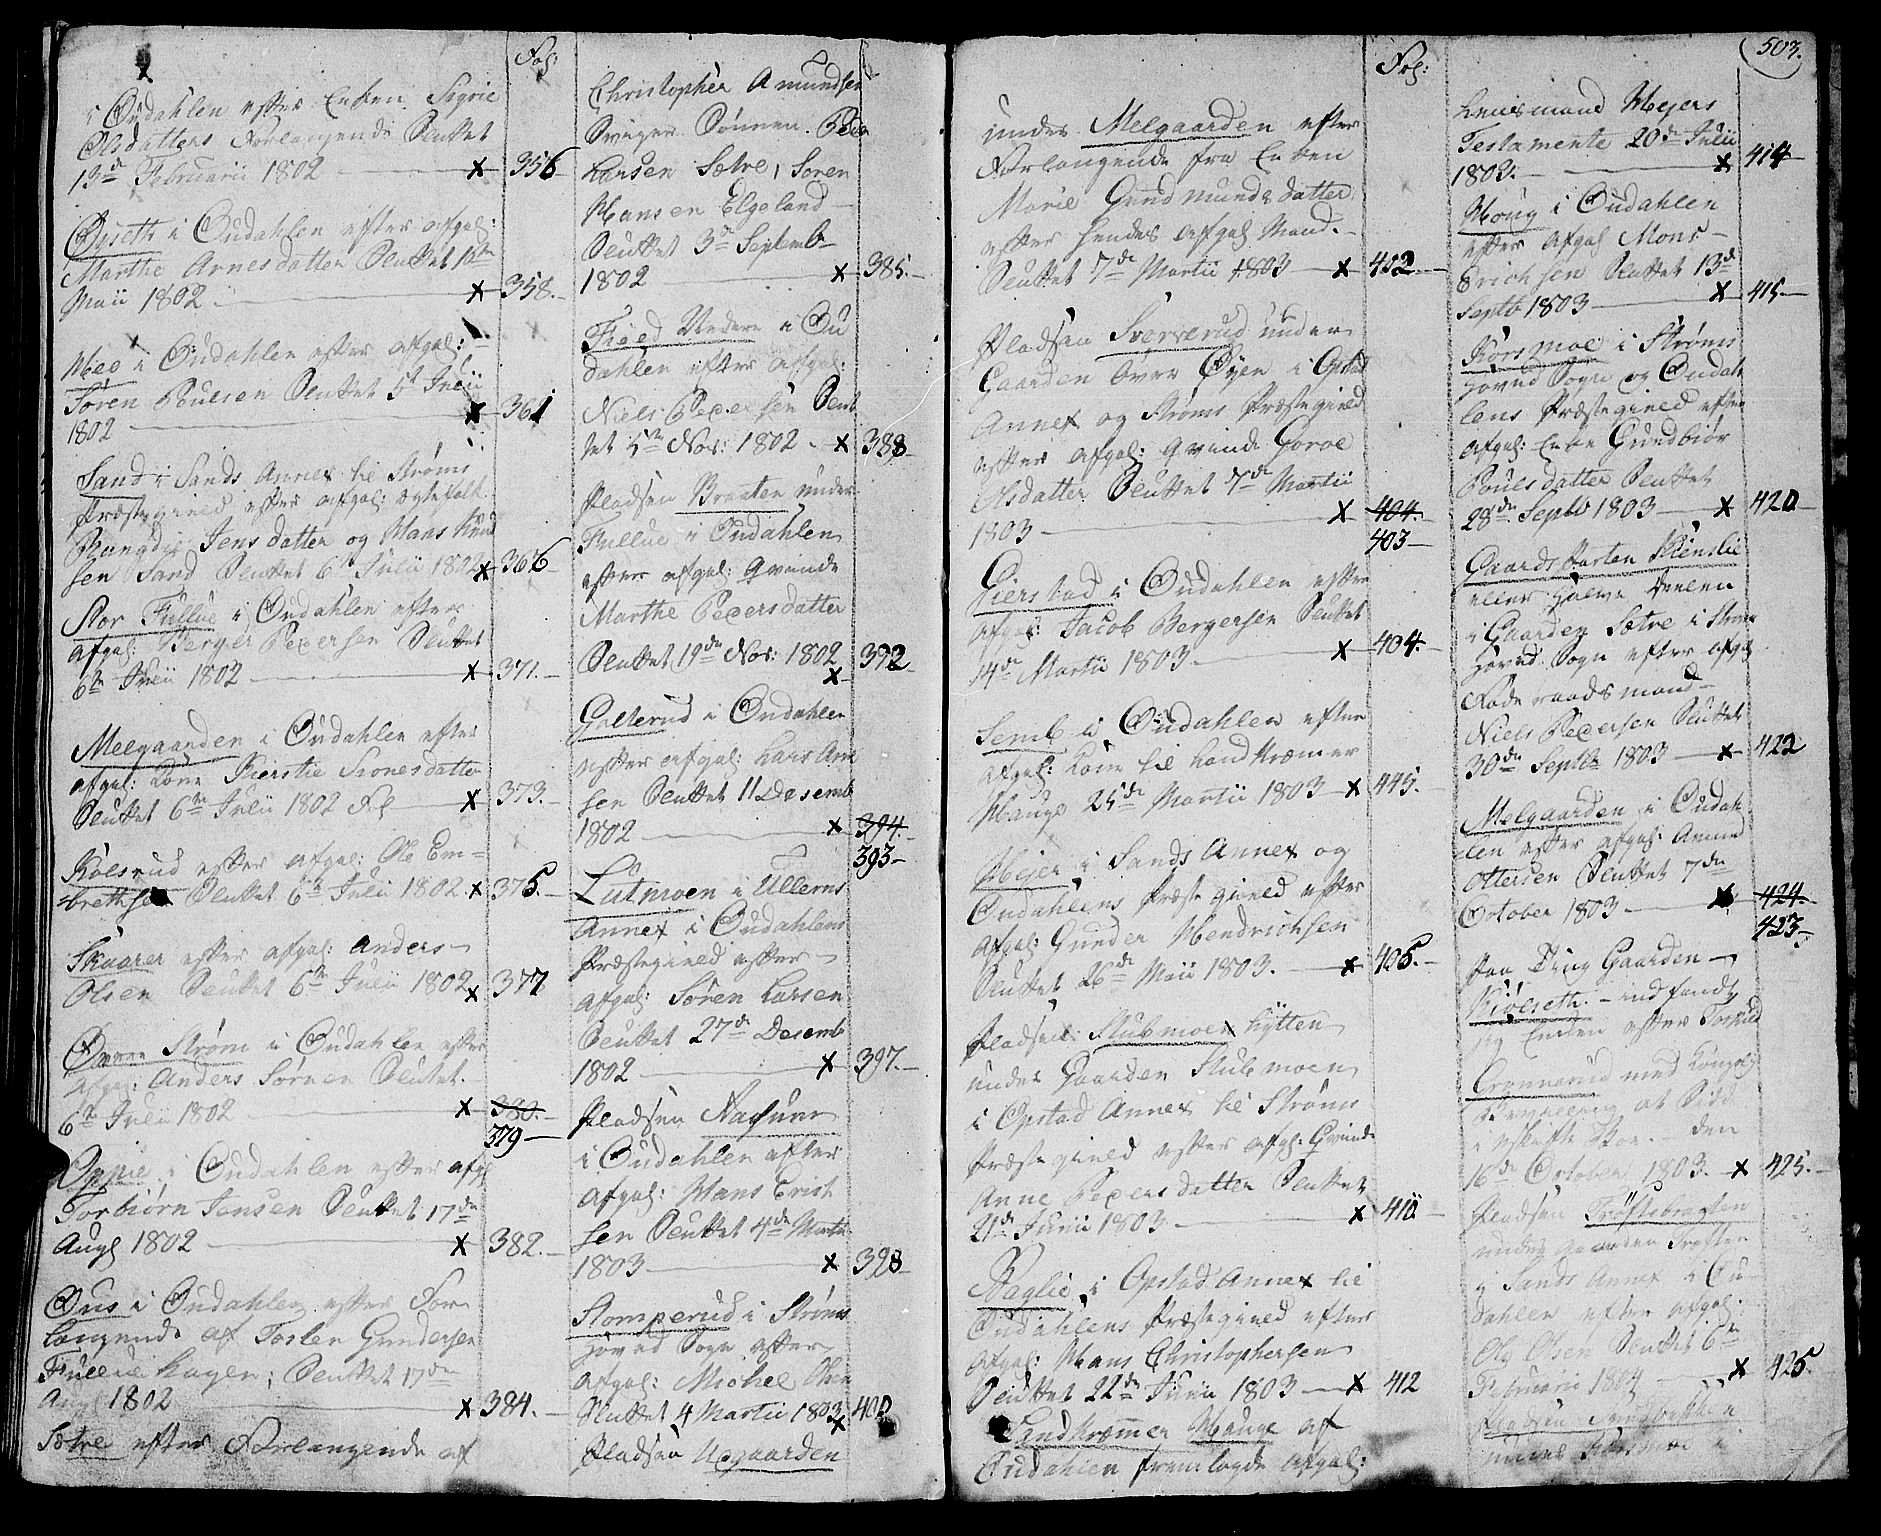 Fol:
i Oudahlen efter Enken Sigrie
Olsdatters Forlangende Sluttet
13d Februarii 1802 x 356
Opseth i Oudahlen efter afgal:
Marthe Arnesdatter Sluttet
Maii 1802 x 358.
Moe i Oudahlen efter afgal:
Søren Poulsen Sluttet 5t Julii
1802 x 361
Sand i Sands Annex til Strøms
Præstegield efter afgal: ægtefolk
Rangdi Jensdatter og Hans Knud
sen Sand Sluttet 6te Julii 1802 x 366
Stor Fullue i Oudahlen efter
afgal: Berger Pedersen Sluttet
6te Julii 1802 x 371.
Melgaarden i Oudahlen efter
afgal: Kone Kierstie Simonsdatter
Sluttet 6te Julii 1802 Fol x 373.
Kolsrud efter afgal: Ole Em=
brethsen Sluttet 6te Julii 1802. x 375.
Skaarer efter afgal: Anders
Olsen Sluttet 6te Julii 1802 x 377
Strøm i Oudahlen efter
afgal: Anders Sørnen Sluttet.
6te Julii 1802 x 380.
379
Oppie i Oudahlen efter afgl
Torbiørn Jensen Sluttet 17de
Augl 1802 x 382.
Ous i Oudahlen efter For
langende af Torsten Gundersen
Fullue hagen, Sluttet 17de
Augl 1802 x 384.
Sætre efter Forlangende af
Christopher Amundsen
Sviger Sønnen Peder
Larsen Sætre, Søren
Hansen Elgeland
Sluttet 3de Septemb
1802 x 385.
Fiød Nedere i Ou
dahlen efter afgal:
Niels Pedersen Slut
tet 5te Nov: 1802 x 388
Pladsen Braaten under
Fullue i Oudahlen
efter afgal: Qvinde
Marthe Pedersdatter
Sluttet 19de Nov: 1802 x 392
Galterud i Oudahlen
efter afgal: Lars Am
sen Sluttet 11 Desemb
1802 x 394.
393
Lutmoen i Ullerns
Annex i Oudahlens
Præstegield efter
afgal: Søren Larsen
Sluttet 27de Decemb
1802 x 397.
Pladsen
i Oudahlen efter
afgal: Hans Erich
sen Sluttet 4de Martii
1803 x 398
Stomperud i Strøms
Hoved Sogn efter
afgal: Michel Olsen
Sluttet 4 Martii 1803 x 400
Pladsen Nigaarden
Fol:
under Melgaarden efter
Forlangende fra Enken
Marie Gundmundsdatter
efter hendes afgal Mand.
Sluttet 7de Martii 1803 x 402
Pladsen Sververud under
Gaarden Øvre Øyen i Opstad
Annex og Strøms Præstegield
efter afgal: Qvinde Goroe
Olsdatter Sluttet 7de Martii
1803 x 404.
403
Gierstad i Oudahlen efter
afgal: Jacob Bergersen Sluttet
14de Martii 1803 x 404.
Semb i Oudahlen efter
afgal: Kone til Landkræmer
Hauge 25de Martii 1803 x 445.
Meyer i Sands Annex og
Oudahlens Præstegield efter
afgal: Gunder Hendrichsen
Sluttet 26de Maii 1803. x 406.
Pladsen Slubmoen hytten
under Gaarden Slubmoen
i Opstad Annex til Strøms
Præstegield efter afgl: Qvinde
Anne Pedersdatter Sluttet
21de Junii 1803 x 410
Raglie i Opstad Annex til
Oudahlens Præstegield efter
afgal: Hans Christophersen
Sluttet 22de Junii 1803 x 412
Landkræmmer Hauge af
Oudahlen fremlagde afgal:
503.
Lensmand Meyers
Testamente 20de Julii
1803. x 414
Houg i Oudahlen
efter afgal Mons
Erichsen Sluttet 13de
Septb 1803 x 415
Korsmoe i Strøms
Hoved Sogn og Oudah
lens Præstegield efter
afgal: Enke Gundbiør
Poulsdatter Sluttet
28de Septb 1803 x 420
Gaards Parten
eller halve Deelen
i Gaarden Sætre i Strøms
Hoved Sogn efter afgal
Foderaadsmand
Niels Pedersen Sluttet
30de Septb 1803 x 422
Melgaarden i Oudah
len efter afgal: Amund
Ottersen Sluttet 7de
October 1803 x 424
423
Paa Ting Gaarden
Kiølseth indfandt
sig Enken efter
Grønnerud med Kongel
Bevilling at Sidde
i uskiftet Boe. Den
16de October 1803. x 425.
Pladsen Trøftebragten
under Gaarden Trøften
i Sands Annex i Ou
dahlen efter afgal.
Ole Olsen Sluttet 6te
Februarii 1804 x 425.
Pladsen
under Korsmoe i